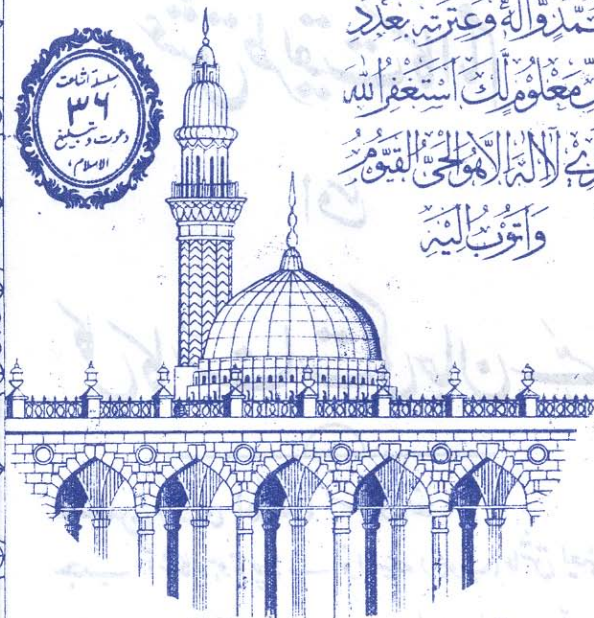 سلسلۂ اشاعت
۳۶
دعوت و تبلیغ
الاسلام
مَّدٍ وَّاٰلِهٖ وَعِتْرَتِهٖ بِعَدَدِ
مَعْلُوْمٍ لَّكَ اَسْتَغْفِرُ اللهَ
لَآ اِلٰهَ اِلَّا هُوَ الْحَىُّ الْقَيُّوْمُ
وَاَتُوْبُ اِلَيْهِ